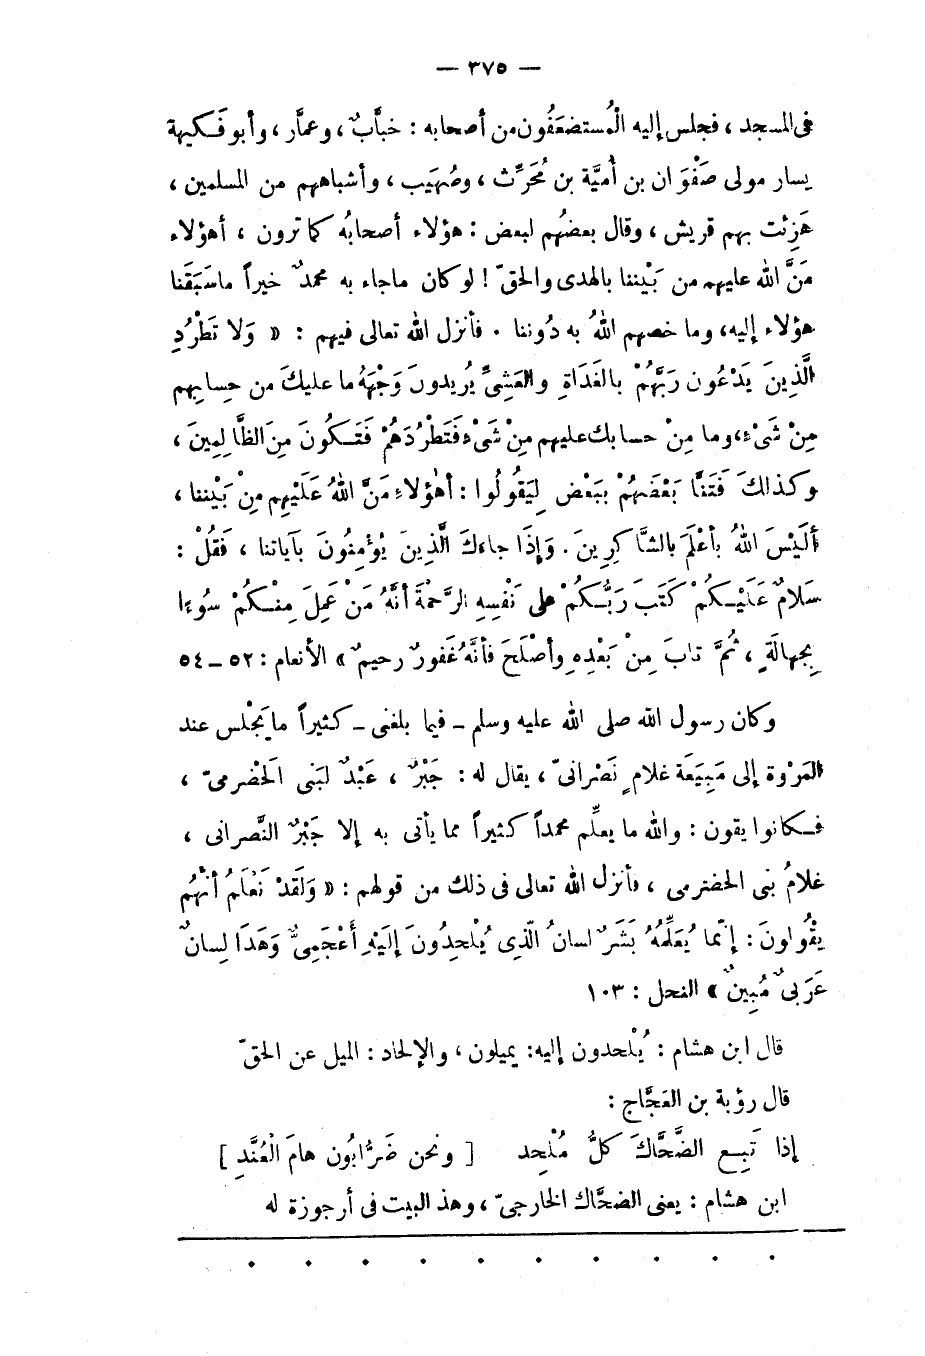 — ٣٧٥ —
فى المسجد ، فجلس إليه الْمُستضعَفُون من أصحابه : خبَّابٌ ، وعمَّار ، وأبو فَكيهة
يسار مولى صَفْوَان بن أُميَّة بن مُحَرِّث ، وصُهَيب ، وأشباههم من المسلمين ،
هَزِئت بهم قريش ، وقال بعضُهم لبعض : هؤلاء أصحابُه كما ترون ، أهؤلاء
مَنَّ الله عليهم من بَيْننا بالهدى والحقّ ! لو كان ماجاء به محمدٌ خيراً ماسَبَقَنا
هؤلاء إليه، وما خصهم اللهُ به دُوننا . فأنزل الله تعالى فيهم : « وَلا تَطْرُدِ
الَّذِينَ يَدْعُون رَبَّهُمْ بالغَدَاةِ والعَشِىِّ يُريدونَ وَجْهَهُ ما عليكَ من حِسابِهِم
مِنْ شَىْءٍ، وما مِنْ حسابك عليهم مِنْ شَىْءٍ فَتَطْرُدَهُمْ فَتَكُونَ مِنَ الظَّالِمِينَ ،
وكذلكَ فَتَنَّا بَعْضَهُمْ بِبَعْضٍ لِيَقُولُوا : أهٰؤلاءِ مَنَّ اللهُ عَلَيْهِم مِنْ بَيْننا ،
ألَيْسَ اللهُ بأعْلَمَ بالشَّاكِرِينَ . وَإذَا جاءكَ الَّذِينَ يُؤْمِنُونَ بآياتنا ، فَقُلْ :
سَلامٌ عَلَيْكُمْ كَتَبَ رَبُّكُمْ على نَفْسِهِ الرَّحْمَةَ أنَّهُ مَنْ عَمِلَ مِنْكُمْ سُوءًا
بِجهالَةٍ ، ثُمَّ تابَ مِنْ بَعْدِهِ وأصْلَحَ فأنَّهُ غَفورٌ رحيمٌ » الأنعام : ٥٢ – ٥٤
وكان رسول الله صلى الله عليه وسلم – فيما بلغنى – كثيراً ما يَجْلس عند
المَرْوة إلى مَبِيَعَة غلامٍ نَصْرانىّ ، يقال له : جَبْرٌ ، عَبْدٌ لبنى الَحْضرمىّ ،
فكانوا يقون : والله ما يعلِّم محمداً كثيراً مما يأتى به إلا جَبْرٌ النَّصرانى ،
غلامُ بنى الحضرمى ، فأنزل الله تعالى فى ذلك من قولهم : « وَلَقَدْ نَعْلَمُ أنَّهُم
يقُولونَ : إنَّما يُعَلِّمُهُ بَشَرٌ لسانُ الّذِى يُلْحِدُونَ إلَيْهِ أعْجَمِىٌّ وَهَذَا لِسانٌ
عَرَبىٌ مُبِينٌ » النحل : ١٠٣
قال ابن هشام : يُلْحدون إليه : يميلون ، والإلحاد : الميل عن الحقّ
قال رؤبة بن العَجَّاج :
إذا تَبِع الضَّحَّاكَ كلُّ مُلْحِد [ ونحن ضَرَّابُون هامَ الْعُنَّدِ ]
ابن هشام : يعنى الضحَّاك الخارجىّ ، وهذ البيت فى أرجوزة له